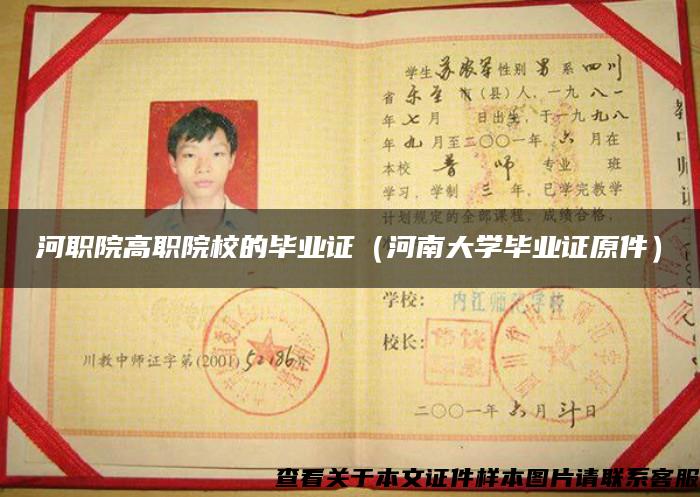 学生苏农军性别男系四川
省乐至市（县）人，一九八一
年七月 日出生，于一九九八
年九月至二〇〇一年六月在
本校普师专业 班
学习，学制三年，已学完教学
计划规定的全部课程，成绩合格，
河职院高职院校的毕业证（河南大学毕业证原件）
学校：内江师范学校
校长：
川教中师证字第(2001)52186号
二〇〇一年六月 日
查看关于本文证件样本图片请联系客服